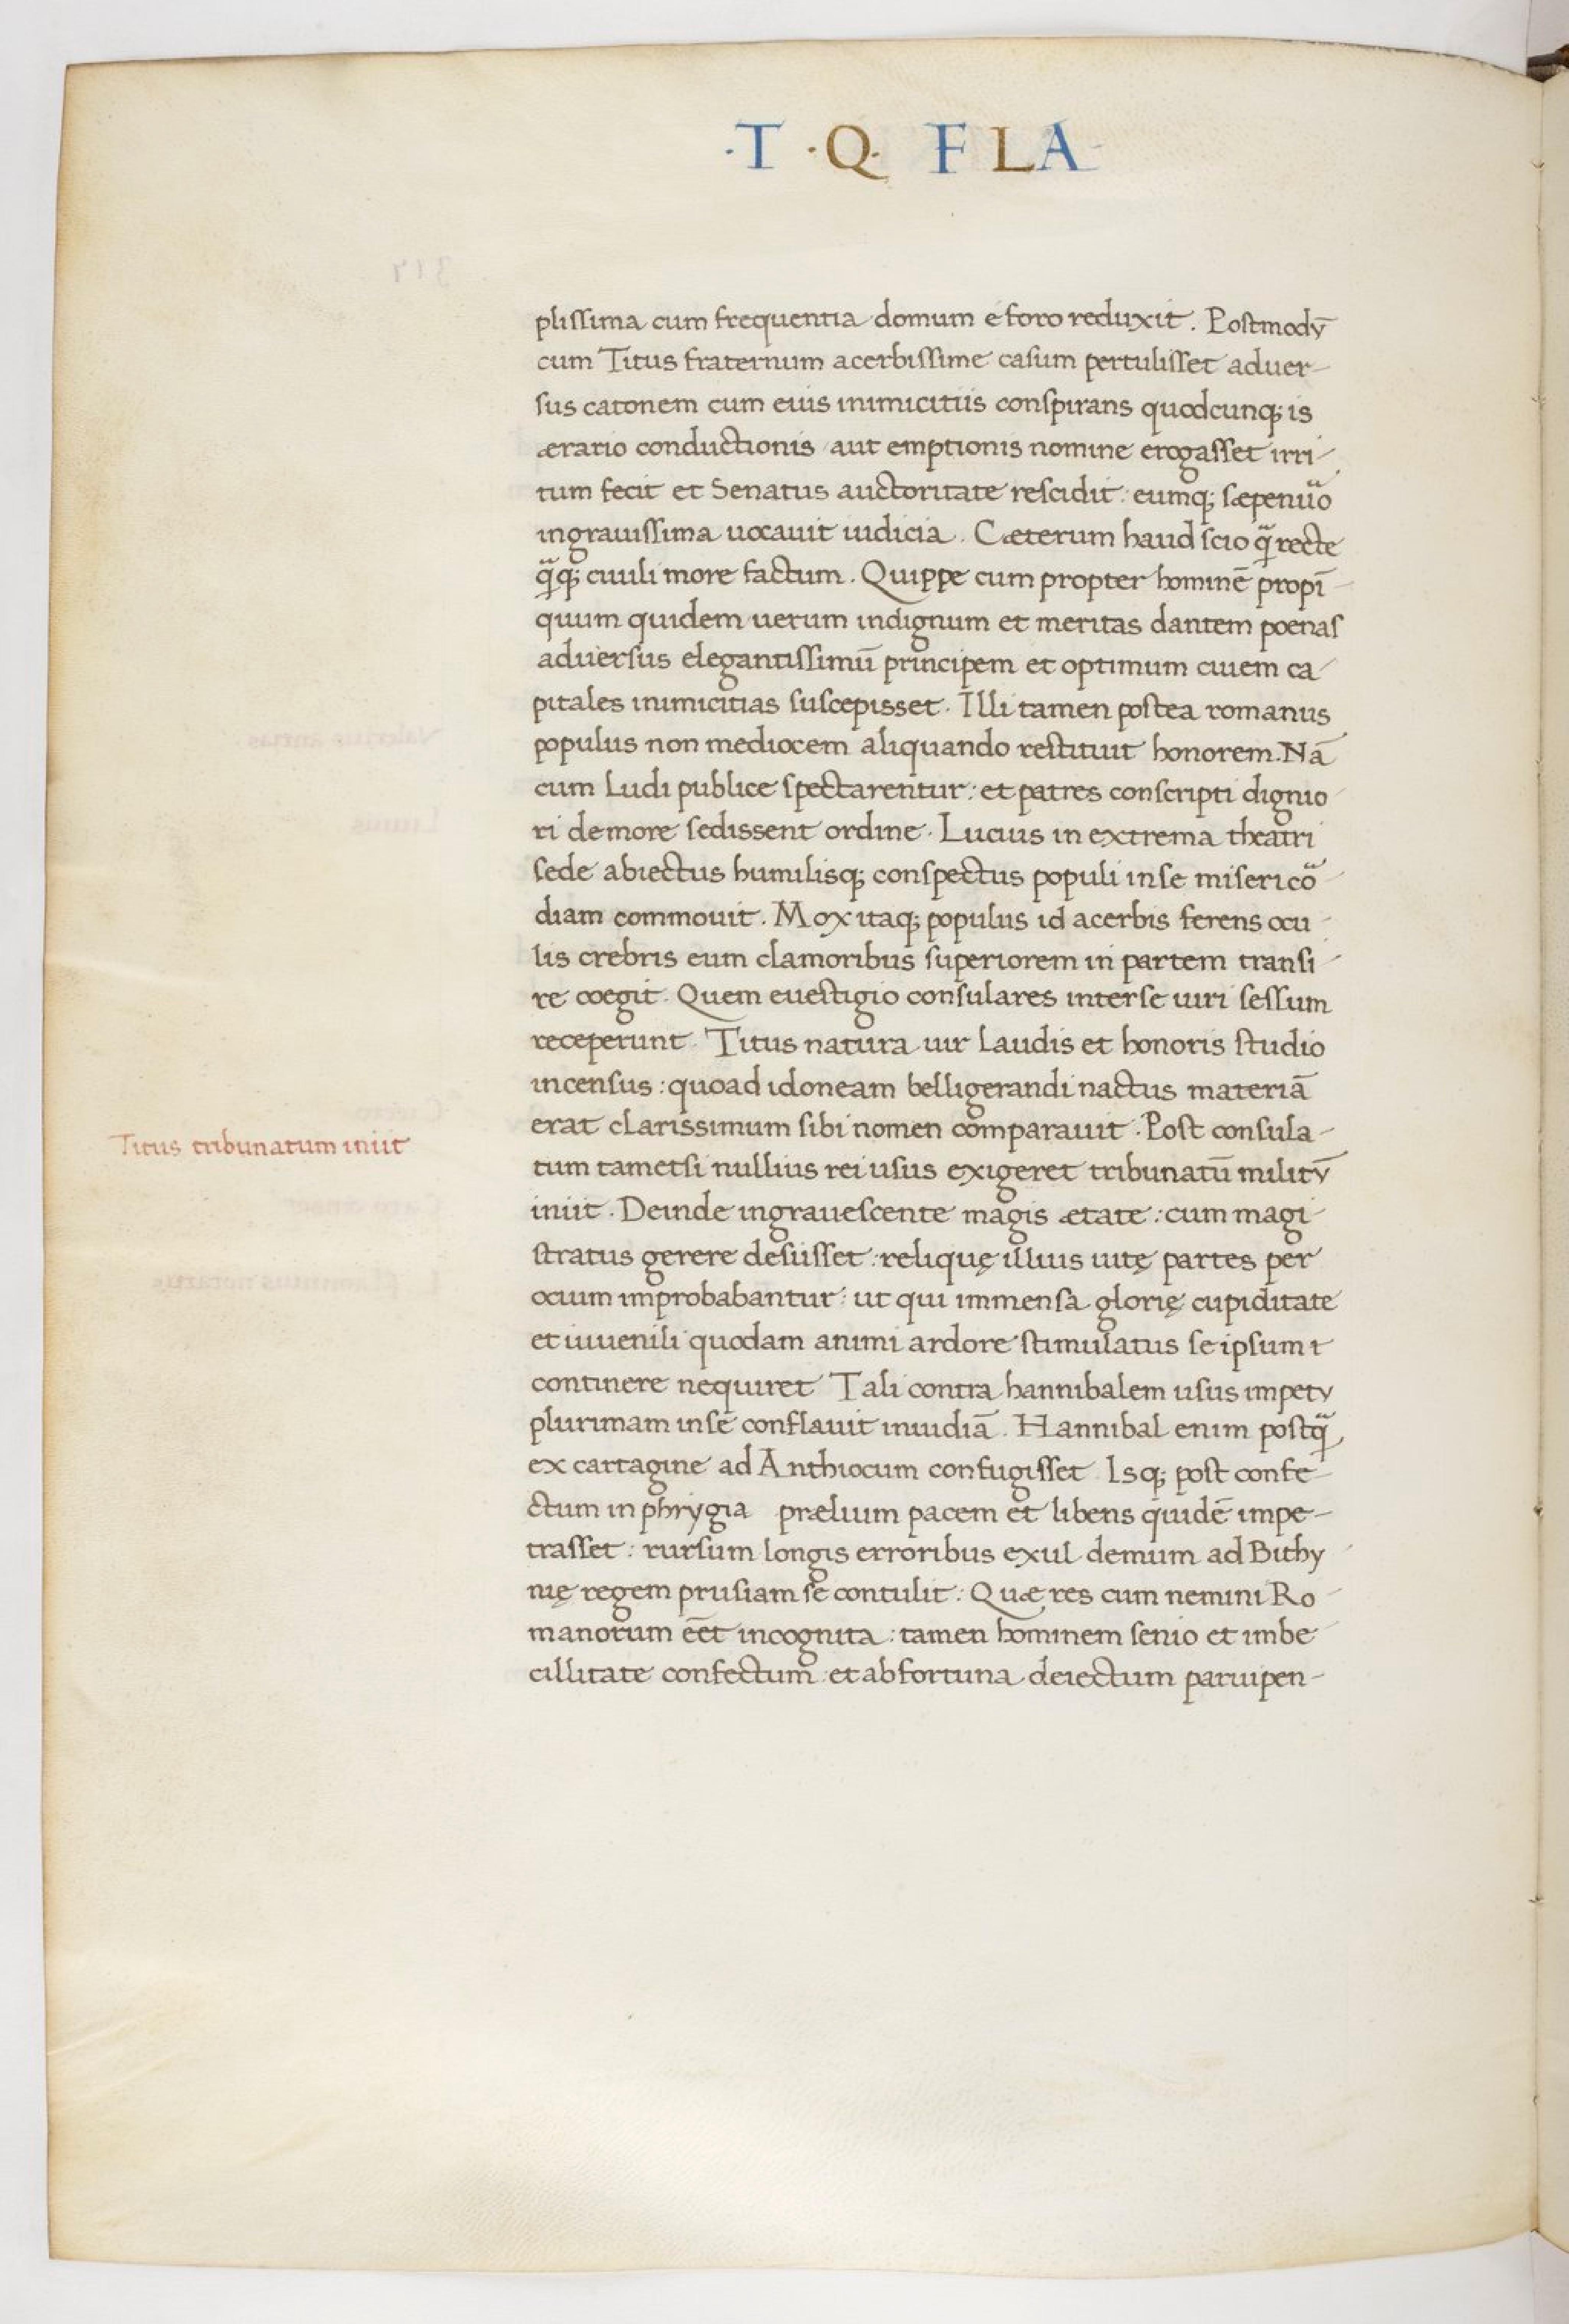 ·T·Q· FLA
plissima cum frequentia domum e foro reduxit. Postmodū
cum Titus fraternum acerbissime casum pertulisset aduer-
sus catonem cum eius inimicitiis conspirans quodcunq; is
ærario conductionis aut emptionis nomine erogasset irri-
tum fecit et Senatus auctoritate rescidit: eumq; sæpenuo
ingrauissima uocauit iudicia. Cæterum haud scio q̃ recte
q̃q; ciuili more factum. Quippe cum propter hominē propī-
quum quidem uerum indignum et meritas dantem poenas
aduersus elegantissimū principem et optimum ciuem ca-
pitales inimicitias suscepisset. Illi tamen postea romanus
populus non mediocem aliquando restituit honorem. Nā
cum Ludi publice spectarentur: et patres conscripti dignio-
ri de more sedissent ordine. Lucius in extrema theatri
sede abiectus humilisq; conspectus populi in se miserico-
diam commouit. Mox itaq; populus id acerbis ferens ocu-
lis crebris eum clamoribus superiorem in partem transi-
re coegit. Quem euestigio consulares inter se uiri sessum
receperunt. Titus natura uir Laudis et honoris studio
incensus: quoad idoneam belligerandi nactus materiā
erat clarissimum sibi nomen comparauit. Post consula-
Titus tribunatum iniit
tum tametsi nullius rei usus exigeret tribunatū militū
iniit. Deinde ingrauescente magis ætate: cum magi-
stratus gerere desiisset: reliquę illius uitę partes per
ocium improbabantur: ut qui immensa glorię cupiditate
et iuuenili quodam animi ardore stimulatus se ipsum
continere nequiret Tali contra hannibalem usus impetu
plurimam in se conflauit inuidiā. Hannibal enim postq̃
ex cartagine ad Anthiocum confugisset. Isq; post confe-
ctum in phrygia prælium pacem et libens quidē impe-
trasset: rursum longis erroribus exul demum ad Bithy-
nię regem prusiam se contulit: Quæ res cum nemini Ro-
manorum eēt incognita: tamen hominem senio et imbe
cillitate confectum: et ab fortuna deiectum paruipen-